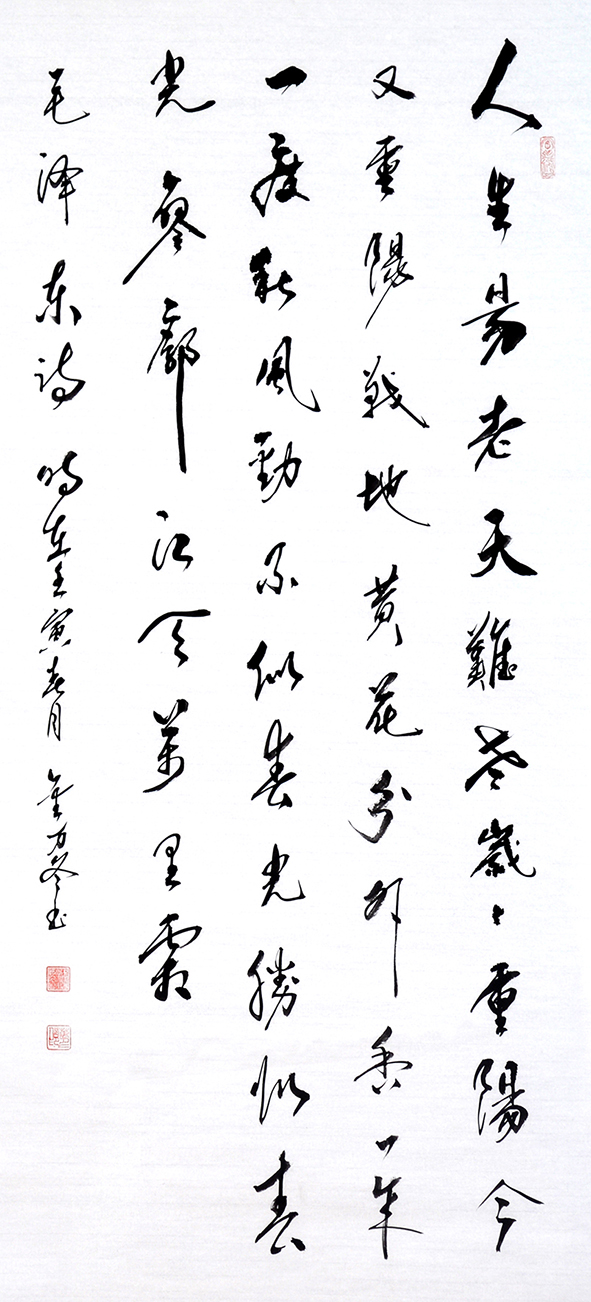 人生易老天難老歲々重陽今
又重陽戰地黃花分外香一年
一度秋風勁不似春光勝似春
光寥廓江天萬里霜
毛泽东诗 时在壬寅春月 金万